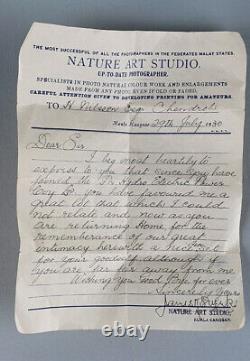 THE MOST SUCCESSFUL OF ALL THE PHOTOGRAPHERS IN THE FEDERATED MALAY STATES.
NATURE ART STUDIO.
UP-TO-DATE PHOTOGRAPHER.
SPECIALISTS IN PHOTO NATURAL COLOUR WORK AND ENLARGEMENTS
MADE FROM ANY PHOTO EVEN IF OLD OR FADED.
CAREFUL ATTENTION GIVEN TO DEVELOPING PRINTING FOR AMATEURS.
To H. Esq. Chendroh
Kuala Kangsar 29th July 1930
Dear Sir
I beg most heartily to
express to you that since you have
joined the Pr. Hydro Electric Power
Coy Ltd you have favoured me a
great lot that which I could
not relate and now as you
are returning Home for the
Rememberance of our great
intimacy herewith a
for your goodself although if
you are far far away from me
Wishing you Good Hope for ever
Sincerely Yours
NATURE ART STUDIO.
KUALA KANGSAR.